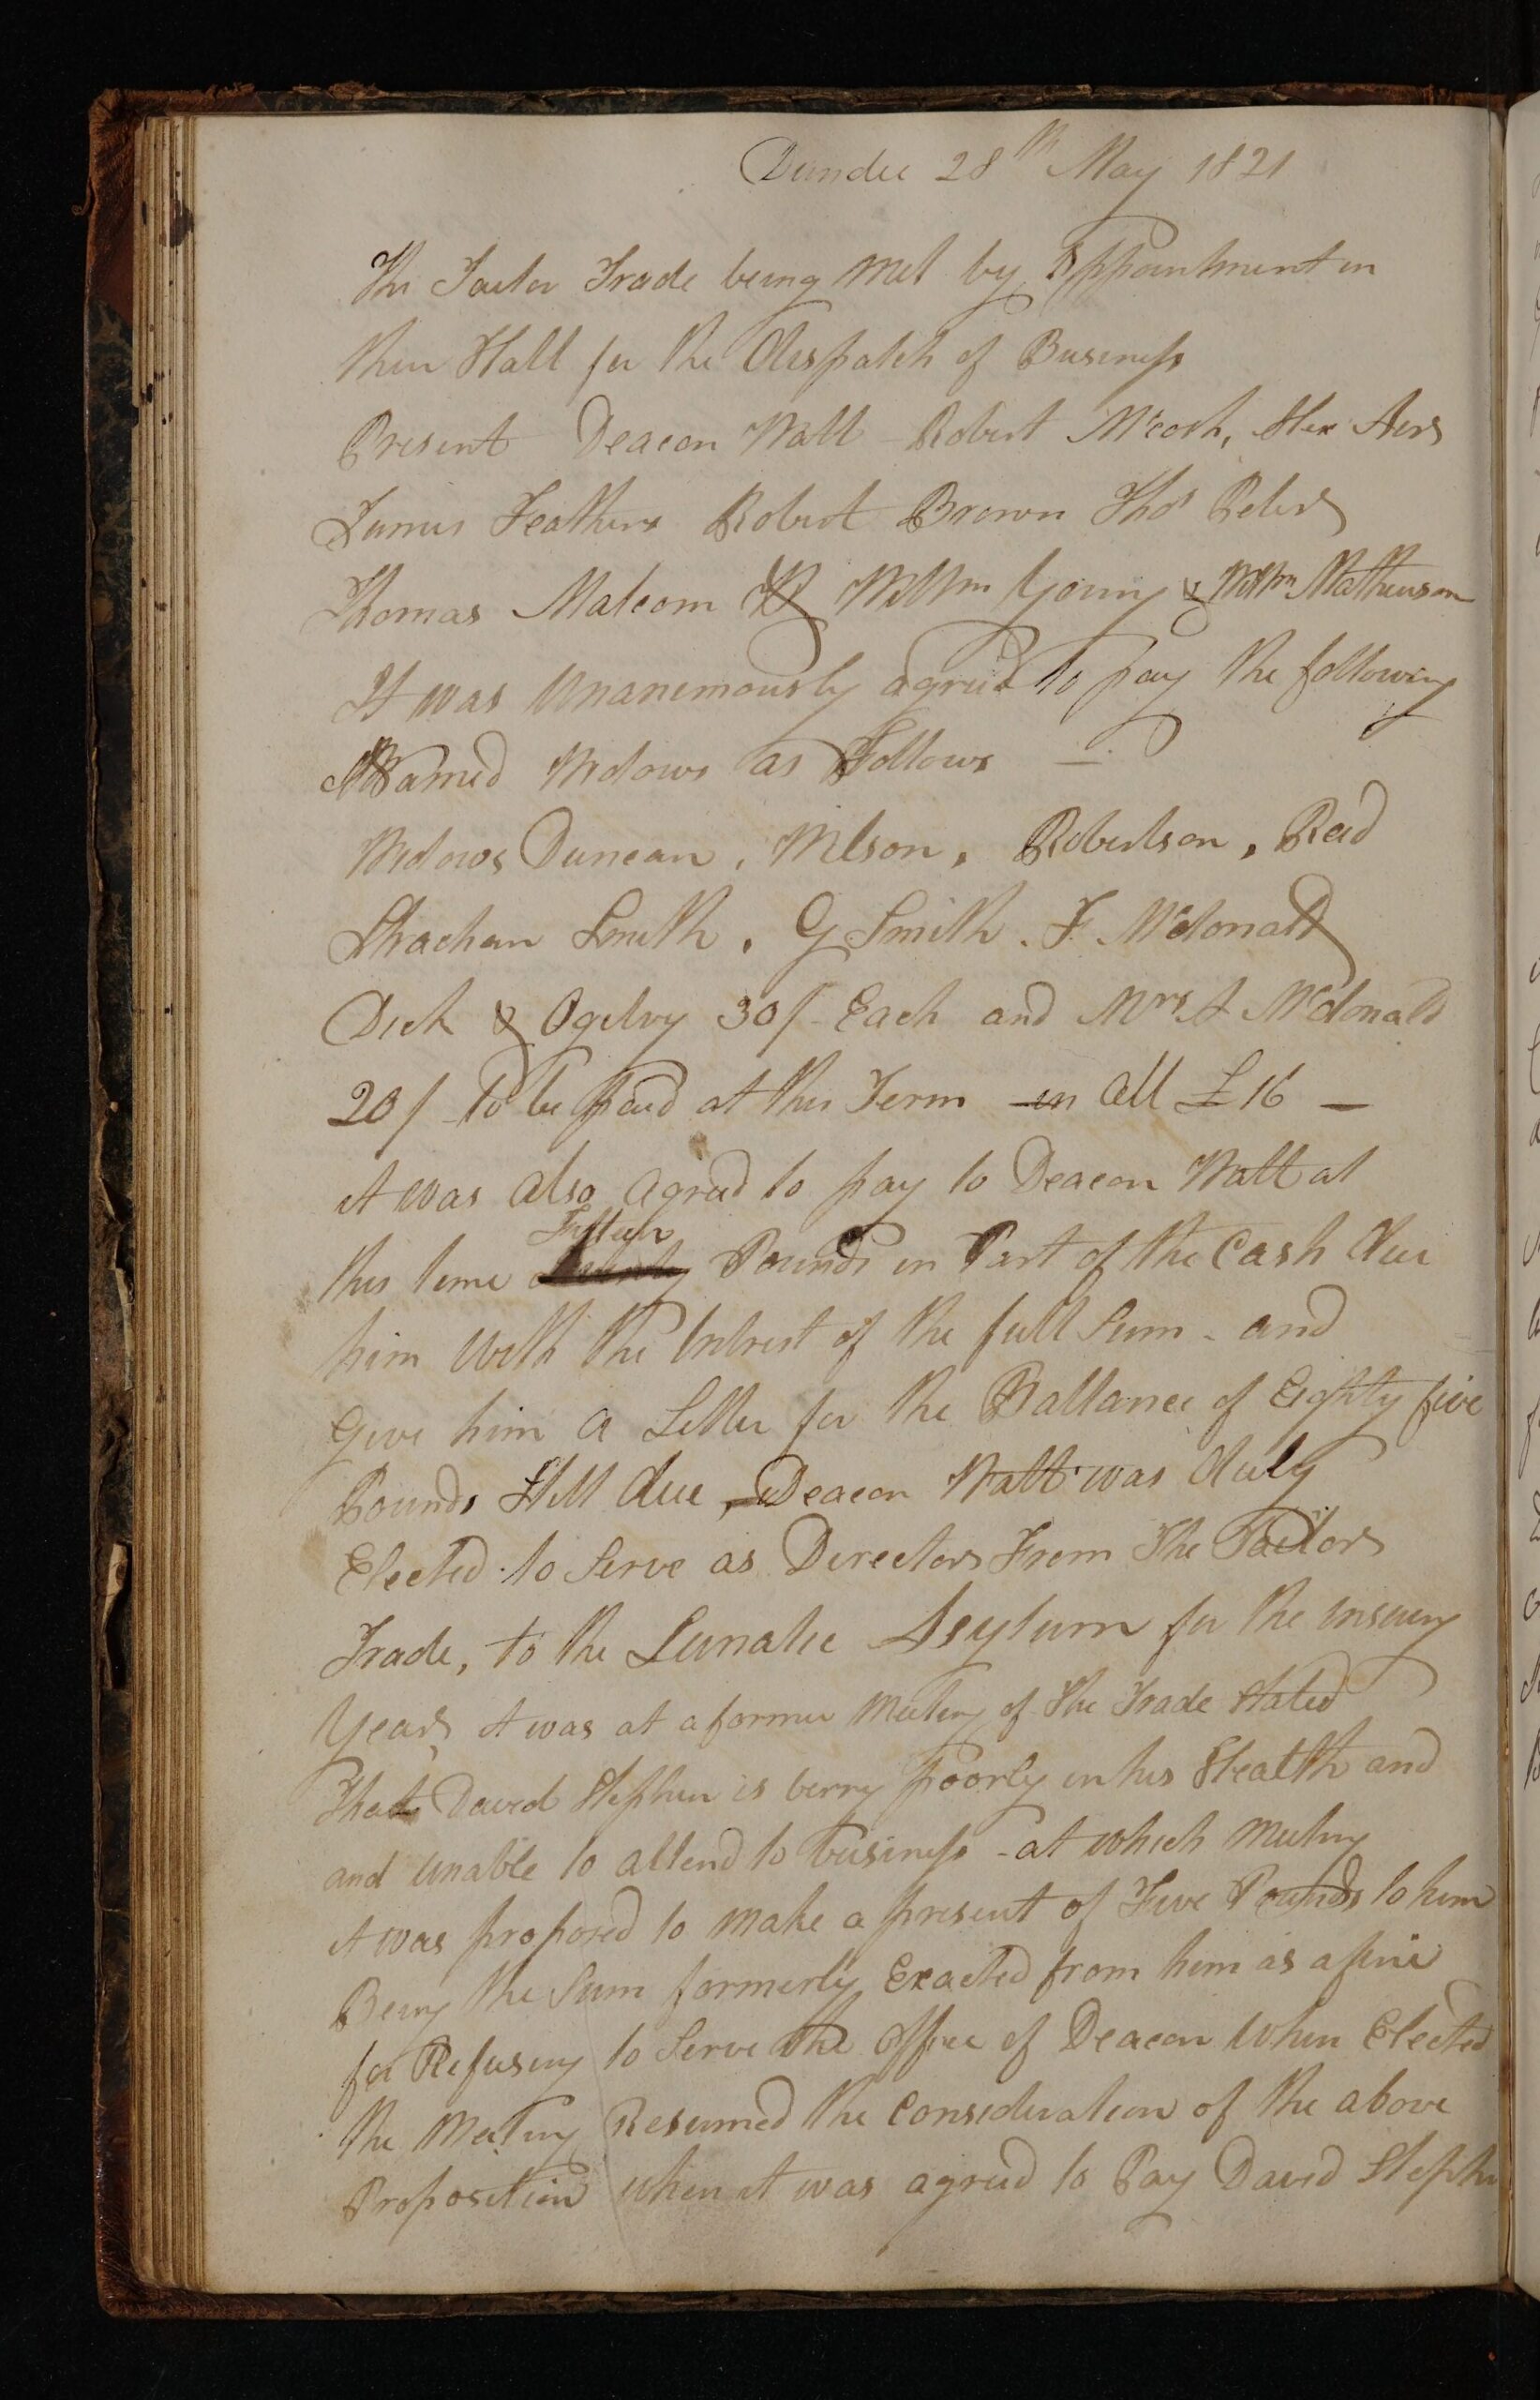 Dundee 28th May 1821
The Taylor Trade being met by Appointment in
their Hall for the dispatch of Business
Present Deacon Watt - Robert McCosh, Alex
James Feathers Robert Brown Thos Peters
Thomas Malcom Willm Young & Willm Mathewson
It was Unanimously agreed to pay the following
Named Widows as Follows —
Widows Duncan, Wilson, Robertson, Reid
Strachan Smith, G Smith. F. Mcdonald
Dick & Ogilvy 30/- Each and Mrs A Mcdonald
20/- to be paid at this Term - in all £16 —
it was also agreed to pay to Deacon Watt at
this time Fifteen Pounds in Part of the Cash due
him with the Intrest of the full Sum - and
Give him a Letter for the Ballance of Eighty five
Pounds Still due, Deacon Watt was duly
Elected to Serve as Directors From The Tailors
Trade, to the Lunatic Asylum for the insuing
Years, it was at a former Meeting of the Trade Stated
That David Stephen is verry poorly in his Health and
and unable to attend to business - at which Meeting
it was proposed to make a present of Five Pounds to him
Being the Sum formerly Exacted from him as a fine
for Refusing to Serve the Office of Deacon when Elected
the Meeting Resumed the Consideration of the above
Proposition when it was agreed to Pay David Stephen